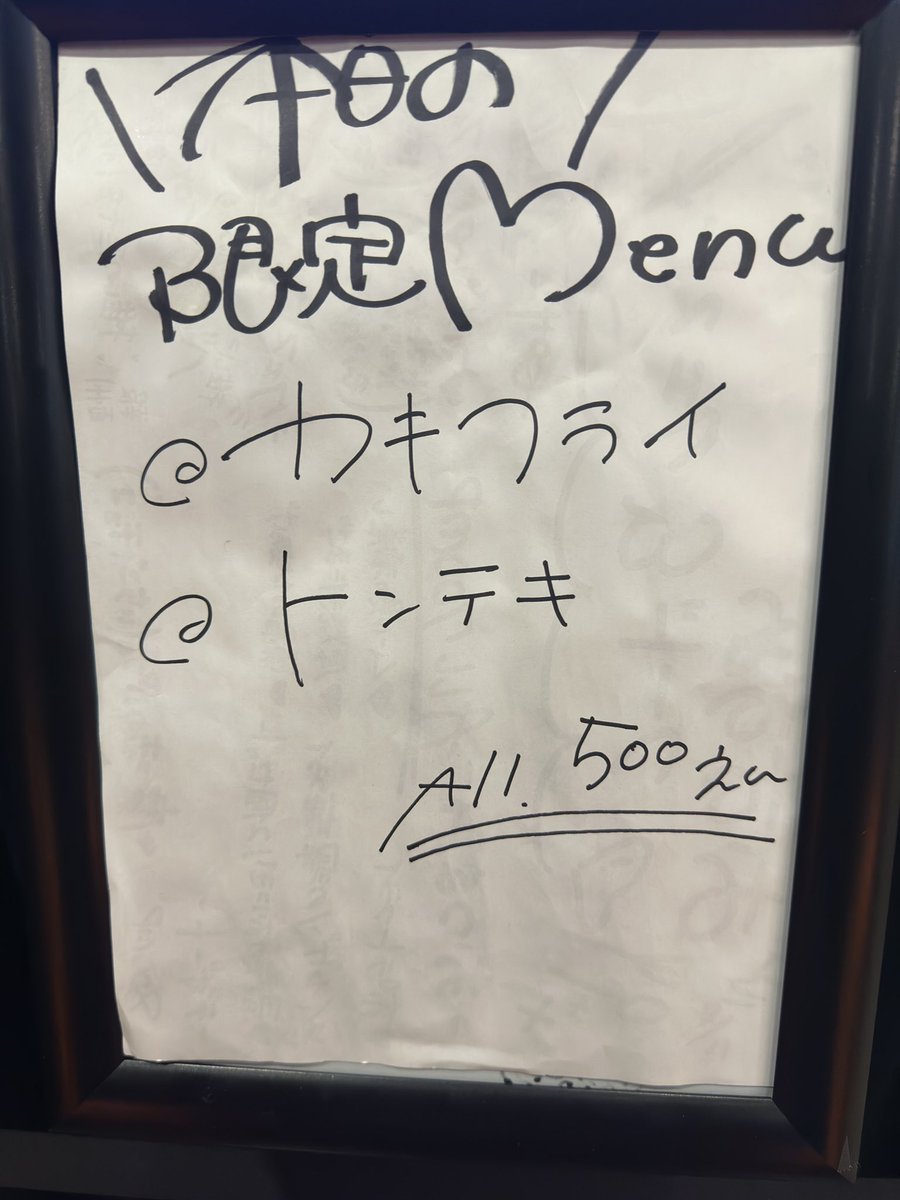 \本日の/
限定Menu
@カキフライ
@トンテキ
All. 500えん